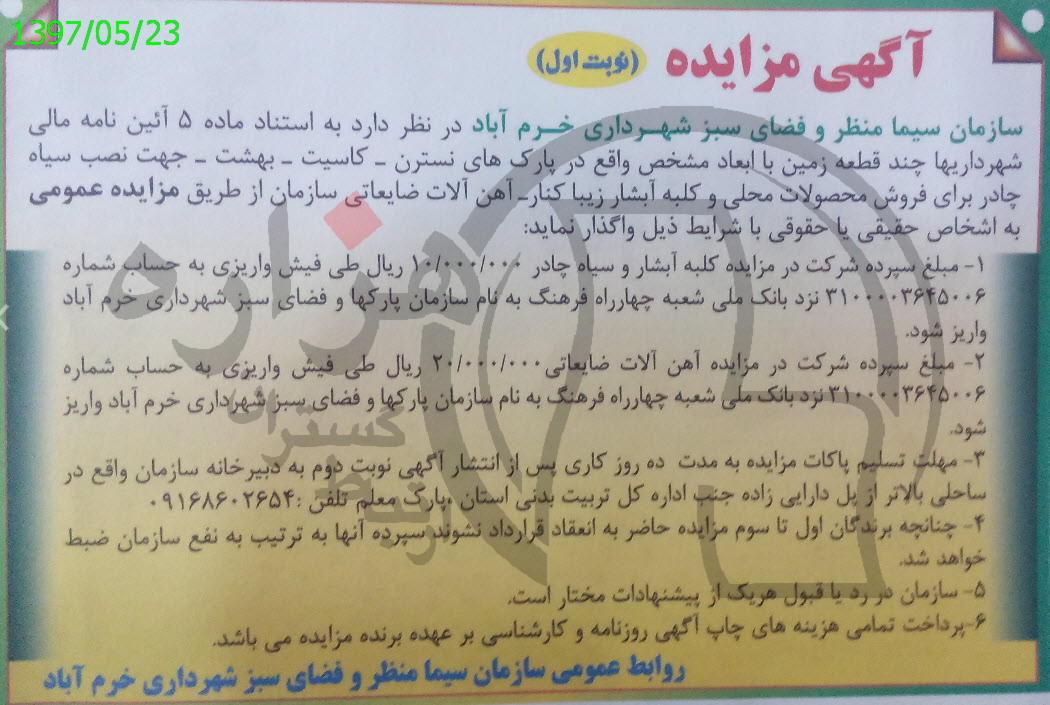 1397/05/23
آگهی مزایده (نوبت اول)
سازمان سیما منظر و فضای سبز شهرداری خرم آباد در نظر دارد به استناد ماده ۵ آئین نامه مالی
شهرداریها چند قطعه زمین با ابعاد مشخص واقع در پارک های نسترن - کاسیت - بهشت - جهت نصب سیاه
چادر برای فروش محصولات محلی و کلبه آبشار زیبا کنار- آهن آلات ضایعاتی سازمان از طریق مزایده عمومی
به اشخاص حقیقی یا حقوقی با شرایط ذیل واگذار نماید:
۱- مبلغ سپرده شرکت در مزایده کلبه آبشار و سیاه چادر ۱۰/۰۰۰/۰۰۰ ریال طی فیش واریزی به حساب شماره
۳۱۰۰۰۰۳۶۴۵۰۰۶ نزد بانک ملی شعبه چهارراه فرهنگ به نام سازمان پارکها و فضای سبز شهرداری خرم آباد
واریز شود.
۲- مبلغ سپرده شرکت در مزایده آهن آلات ضایعاتی ۲۰/۰۰۰/۰۰۰ ریال طی فیش واریزی به حساب شماره
۳۱۰۰۰۰۳۶۴۵۰۰۶ نزد بانک ملی شعبه چهارراه فرهنگ به نام سازمان پارکها و فضای سبز شهرداری خرم آباد واریز
شود.
۳- مهلت تسلیم پاکات مزایده به مدت ده روز کاری پس از انتشار آگهی نوبت دوم به دبیرخانه سازمان واقع در
ساحلی بالاتر از پل دارایی زاده جنب اداره کل تربیت بدنی استان ،پارک معلم تلفن :۰۹۱۶۸۶۰۲۶۵۴
۴- چنانچه برندگان اول تا سوم مزایده حاضر به انعقاد قرارداد نشوند سپرده آنها به ترتیب به نفع سازمان ضبط
خواهد شد.
۵- سازمان در رد یا قبول هریک از پیشنهادات مختار است.
۶-پرداخت تمامی هزینه های چاپ آگهی روزنامه و کارشناسی بر عهده برنده مزایده می باشد.
روابط عمومی سازمان سیما منظر و فضای سبز شهرداری خرم آباد
هزاره
گستران